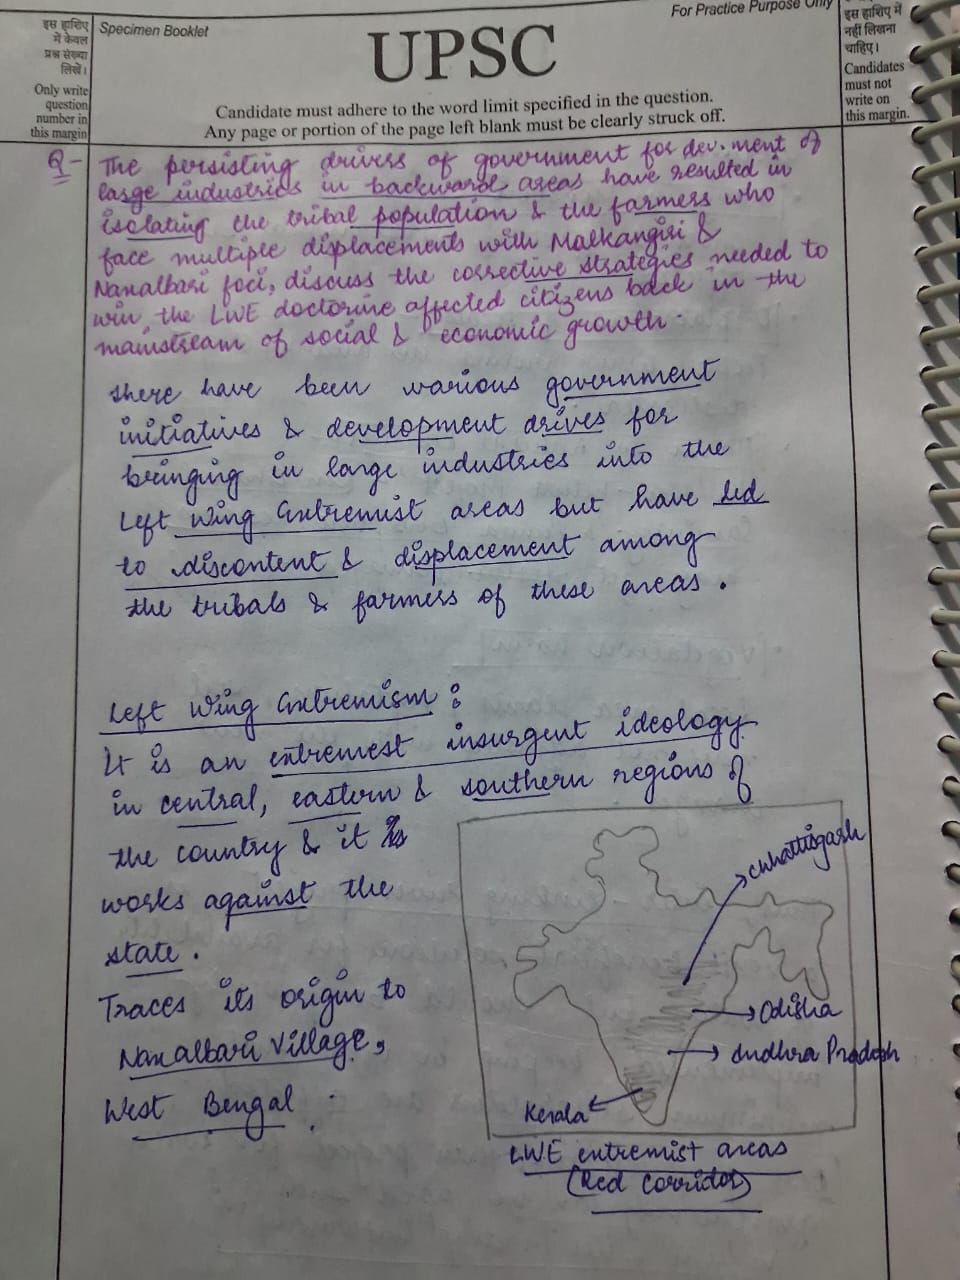 इस हाशिए
में केवल
प्रश्न संख्या
लिखें।
Only write
question
number in
this margin
Specimen Booklet
For Practice Purpose Only
UPSC
Candidate must adhere to the word limit specified in the question.
Any page or portion of the page left blank must be clearly struck off.
इस हाशिए में
नहीं लिखना
चाहिए।
Candidates
must not
write on
this margin.
Q- The persisting drives of government for dev.ment of
large industries in backward areas have resulted in
isolating the tribal population & the farmers who
face multiple displacements with Malkangiri &
Naxalbari foci, discuss the corrective strategies needed to
win the LWE doctorine affected citizens back in the
mainstream of social & economic growth.
there have been various government
initiatives & development drives for
bringing in large industries into the
Left wing Extremist areas but have led
to discontent & displacement among
the tribals & farmers of these areas.
Left Wing Extremism :
It is an extremest insurgent ideology
in central, eastern & southern regions of
the country & it is
works against the
state.
Traces its origin to
Naxalbari Village,
West Bengal.
Chhattisgarh
Odisha
Andhra Pradesh
Kerala
LWE extremist areas
(Red corridor)